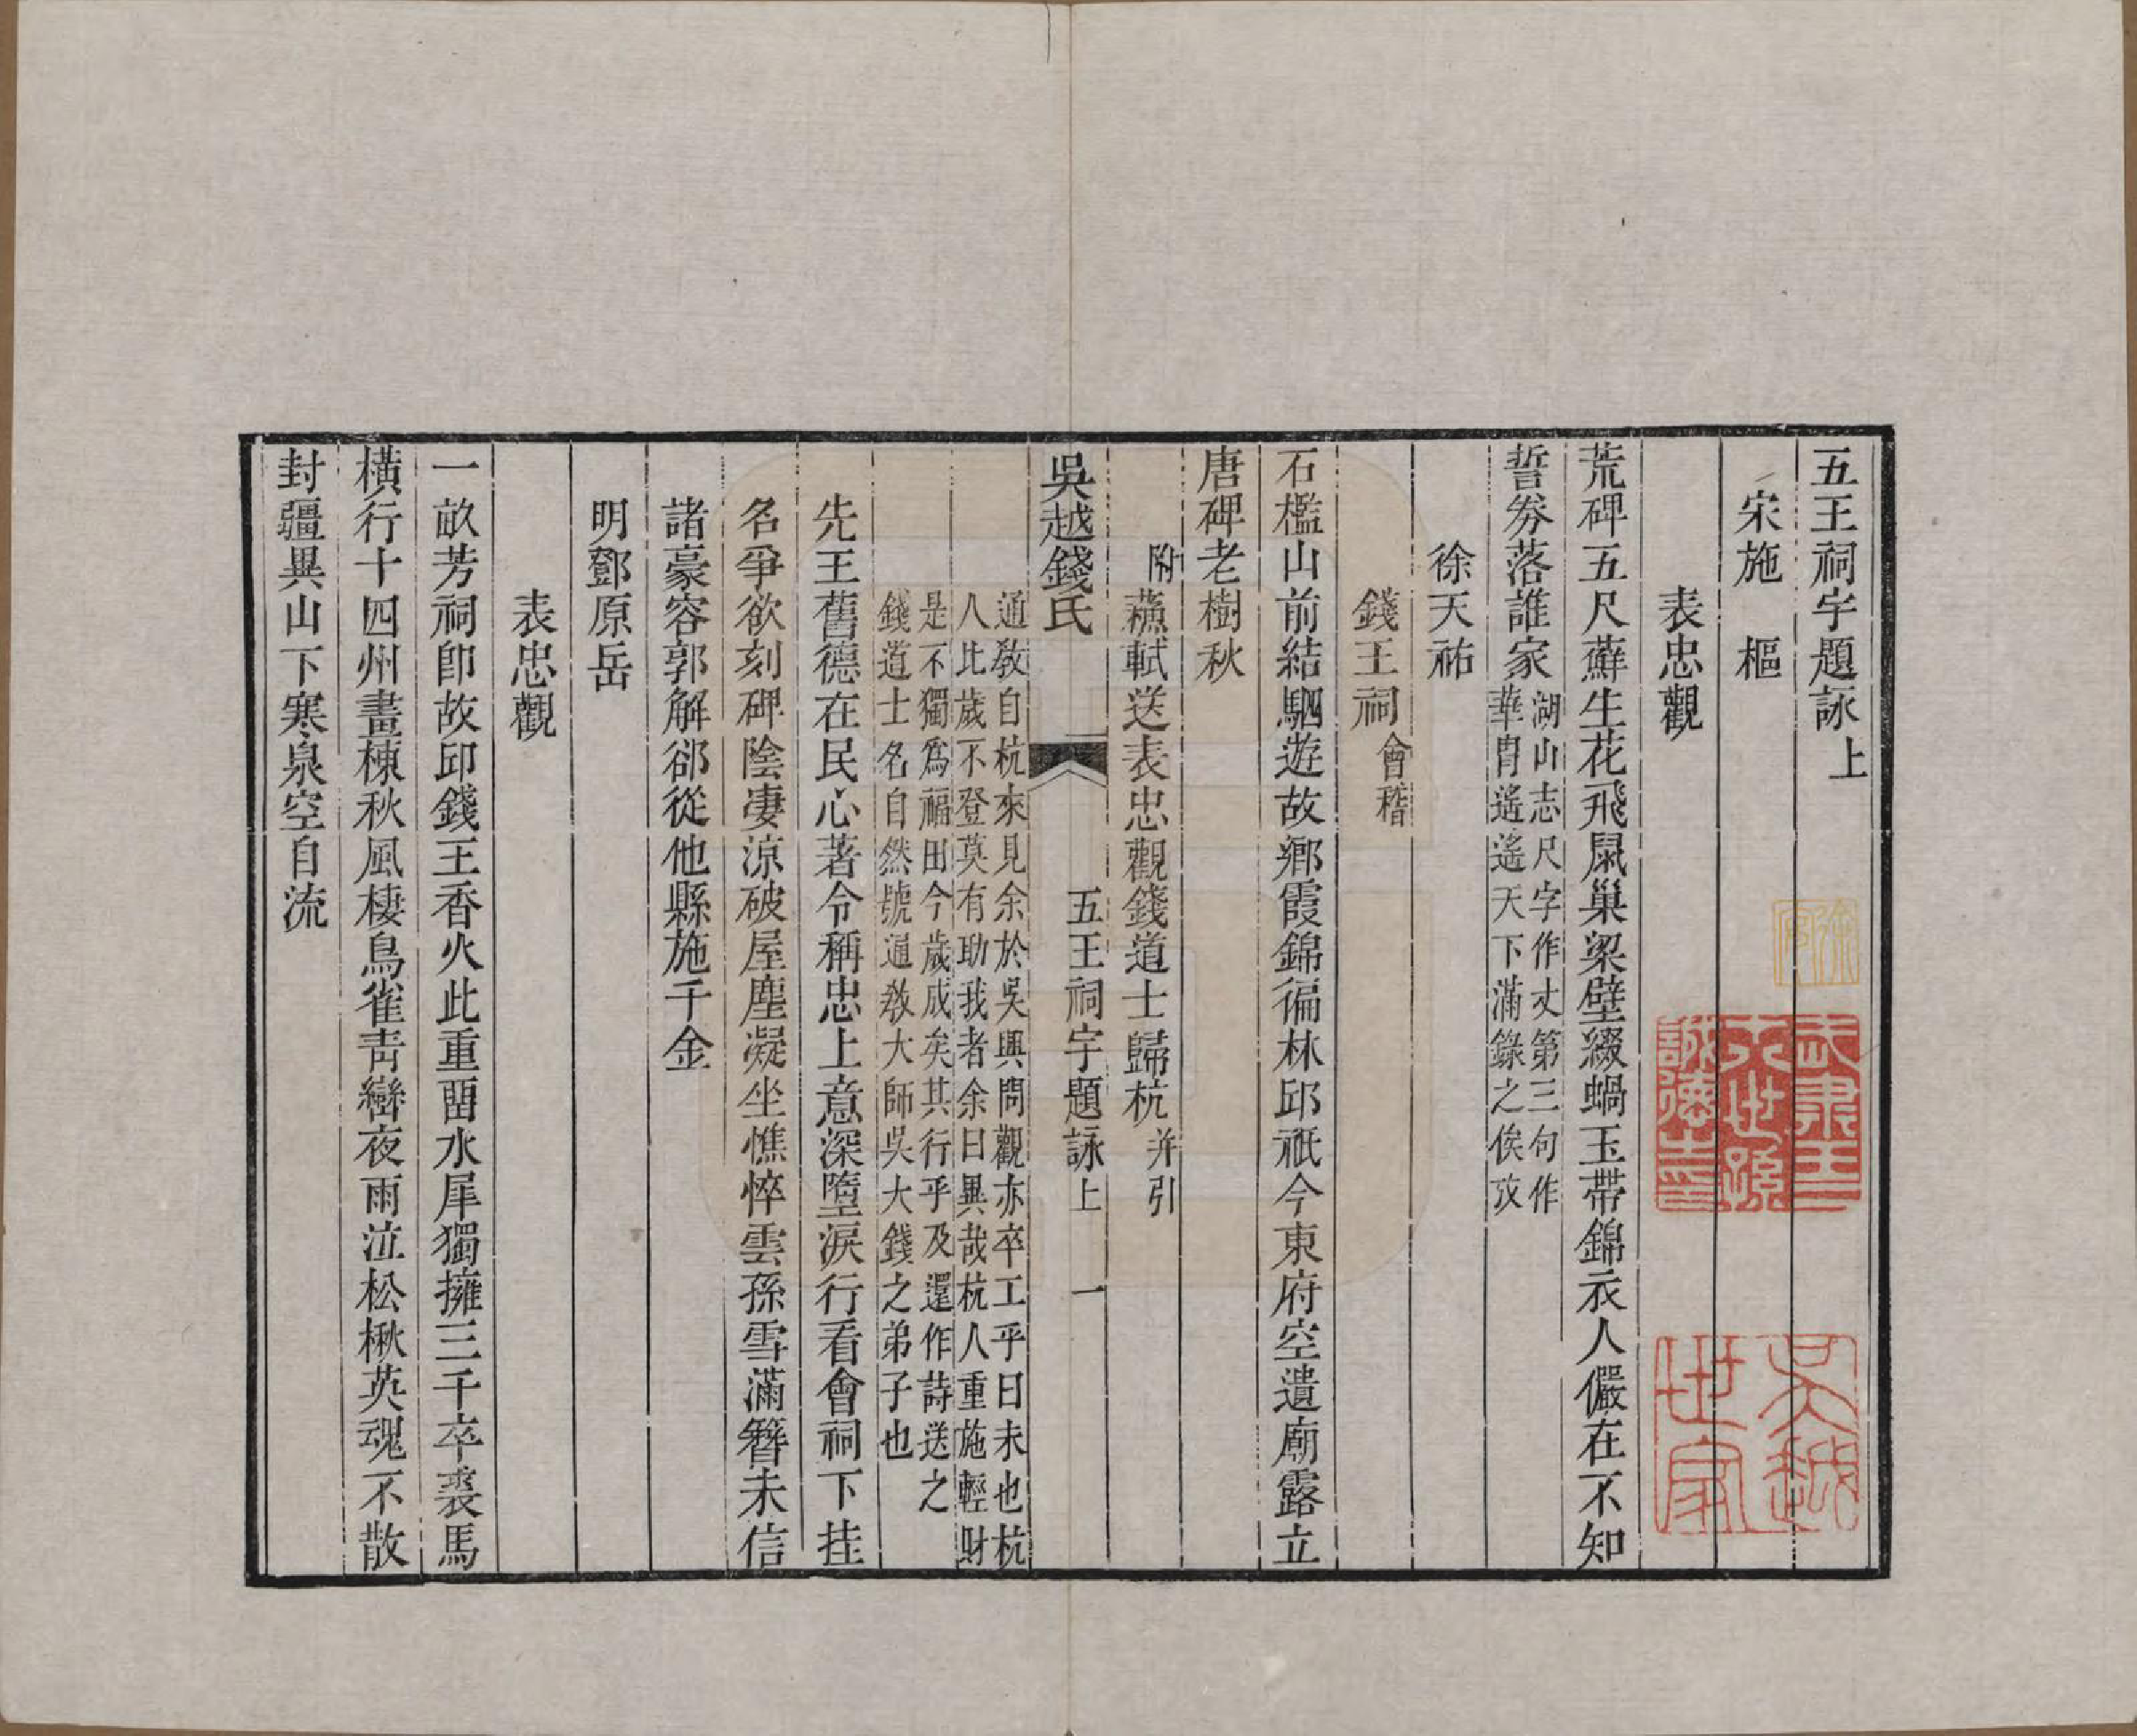 五王祠宇題詠上
宋施　樞
表忠觀
荒碑五尺蘚生花飛鼠巢梁壁綴蝸玉帶錦衣人儼在不知
誓劵落誰家湖山志尺字作丈第三句作
華胄遙遙天下滿錄之俟攷
徐天祐
錢王祠會稽
石檻山前結駟遊故鄉霞錦徧林邱祇今東府空遺廟露立
唐碑老樹秋
附蘇軾送表忠觀錢道士歸杭并引
吳越錢氏　五王祠宇題詠上　一
通敎自杭來見余於吳興問觀亦卒工乎曰未也杭
人比歲不登莫有助我者余曰異哉杭人重施輕財
是不獨爲福田今歲成矣其行乎及還作詩送之
錢道士名自然號通敎大師吳大錢之弟子也
先王舊德在民心著令稱忠上意深墮淚行看會祠下挂
名爭欲刻碑陰凄涼破屋塵凝坐憔悴雲孫雪滿簪未信
諸豪容郭解郤從他縣施千金
明鄧原岳
表忠觀
一畝芳祠卽故邱錢王香火此重畱水犀獨擁三千卒裘馬
橫行十四州畫棟秋風棲鳥雀靑巒夜雨泣松楸英魂不散
封疆異山下寒泉空自流
武肅王三
十世孫
吳越
世家